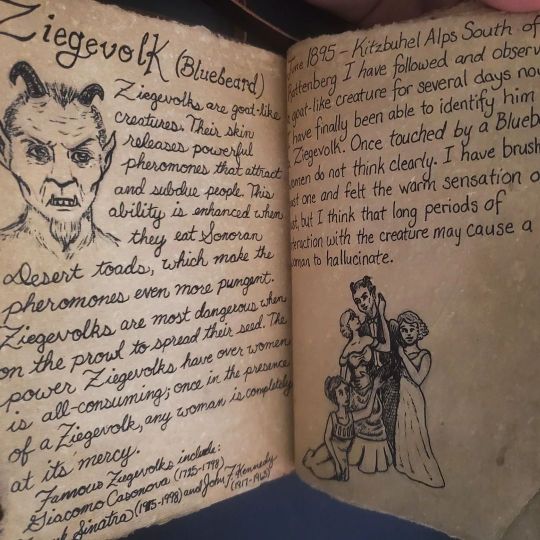 Ziegevolk (Bluebeard)
Ziegevolks are goat-like
creatures. Their skin
releases powerful
pheromones that attract
and subdue people. This
ability is enhanced when
they eat Sonoran
Desert toads, which make the
pheromones even more pungent.
Ziegevolks are most dangerous when
on the prowl to spread their seed. The
power Ziegevolks have over women
is all-consuming; once in the presence
of a Ziegevolk, any woman is completely
at its mercy.
Famous Ziegevolks include:
Giacomo Casonova (1725-1798)
Sinatra (1915-1998) and John F. Kennedy
(1917-1963)
1895 – Kitzbuhel Alps South of
I have followed and observ
goat-like creature for several days no
have finally been able to identify him
Ziegevolk. Once touched by a Blueb
do not think clearly. I have brush
one and felt the warm sensation o
but I think that long periods of
with the creature may cause a
to hallucinate.